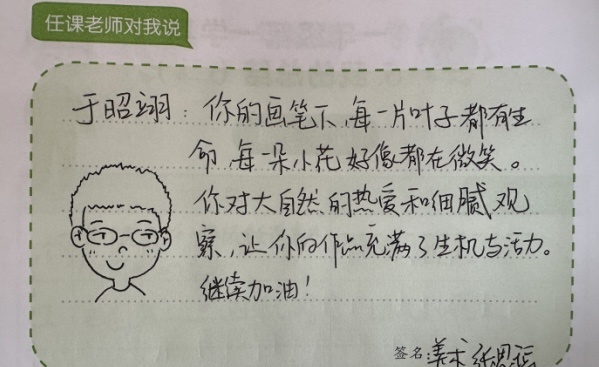 任课老师对我说
于昭翊：你的画笔下，每一片叶子都有生
命，每一朵小花好像都在微笑。
你对大自然的热爱和细腻观
察，让你的作品充满了生机与活力。
继续加油！
签名：美术 张